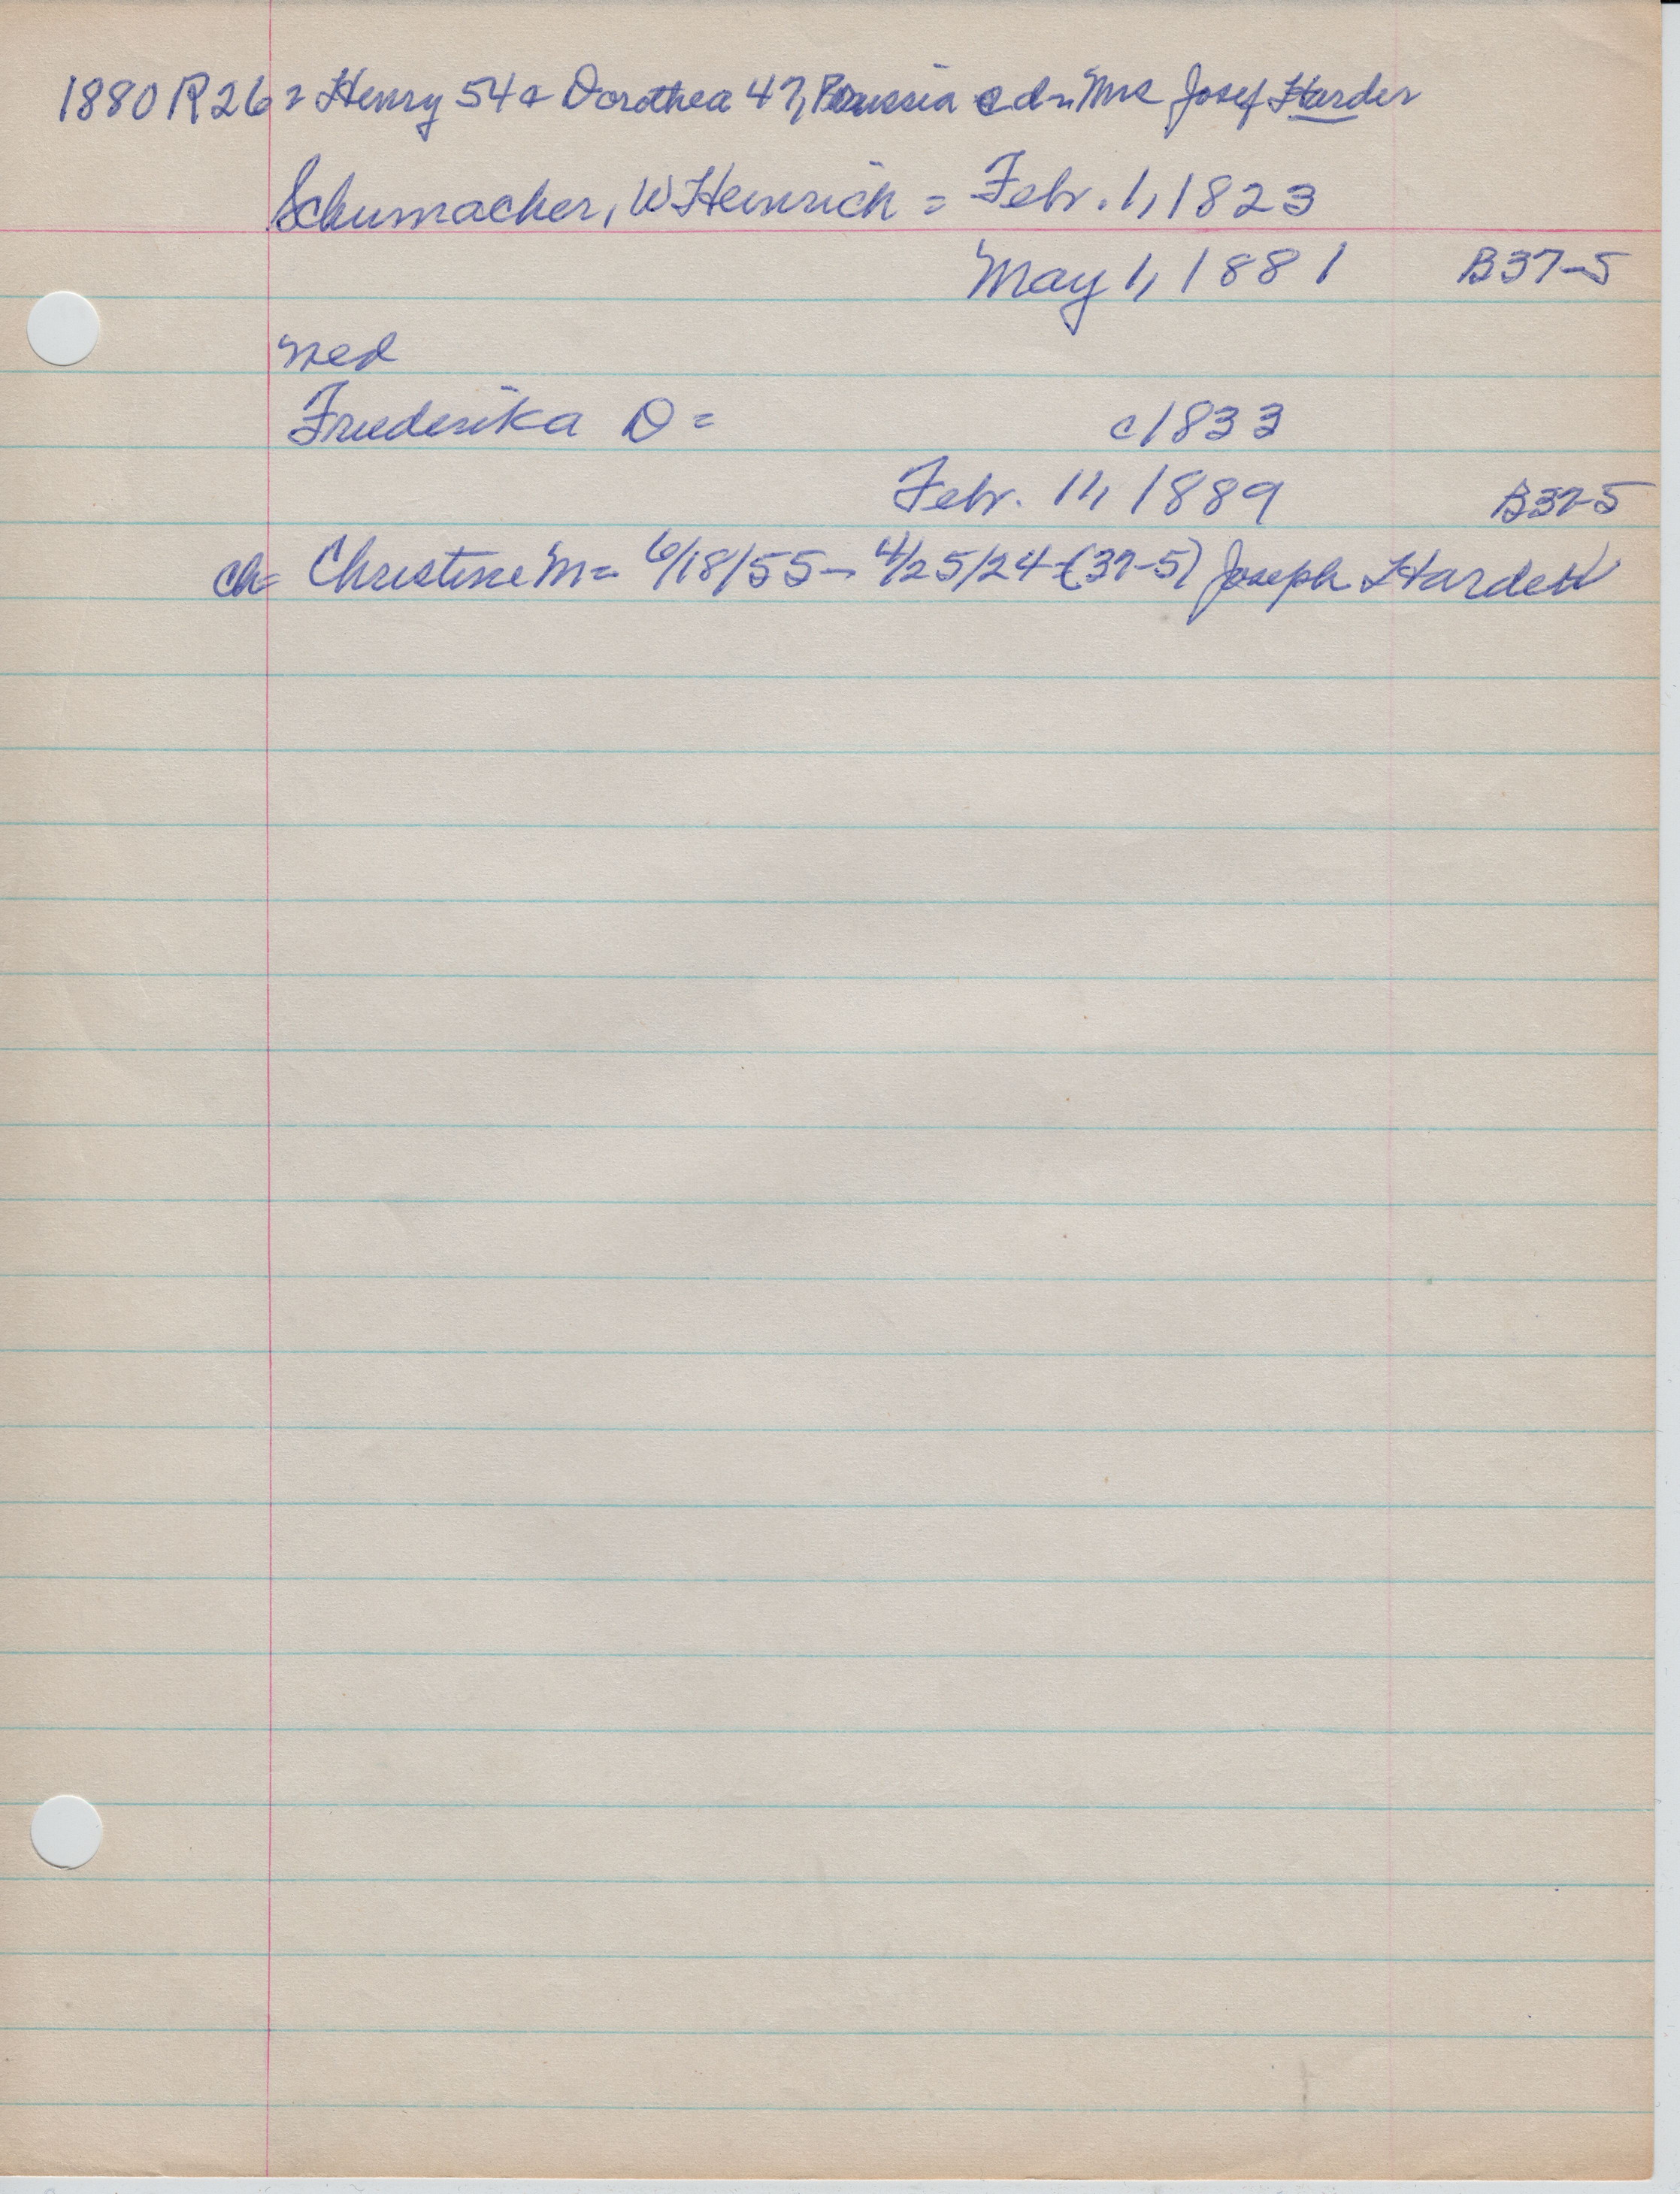 1880 R26 = Henry 54 & Dorothea 47, Prussia c d = Mrs Josef Harder
Schumacher, W Heinrich = Febr. 1, 1823
May 1, 1881 B37-5
med
Friederika D = c1833
Febr. 11, 1889 B37-5
ch = Christine M = 6/18/55 - 4/25/24 (37-5) Joseph Harder